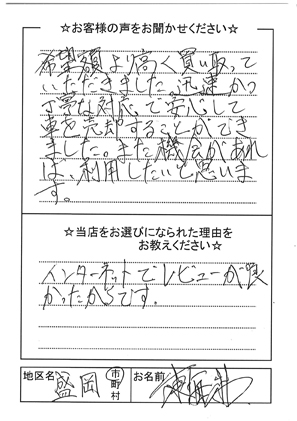 ☆お客様の声をお聞かせください☆
希望額より高く買い取って
いただきました。迅速かつ
丁寧な対応で安心して
車を売却することができ
ました。また機会があれ
ば、利用したいと思いま
す。
☆当店をお選びになられた理由を
お教えください☆
インターネットでレビューが良
かったからです。
地区名 盛岡 市 町 村 お名前